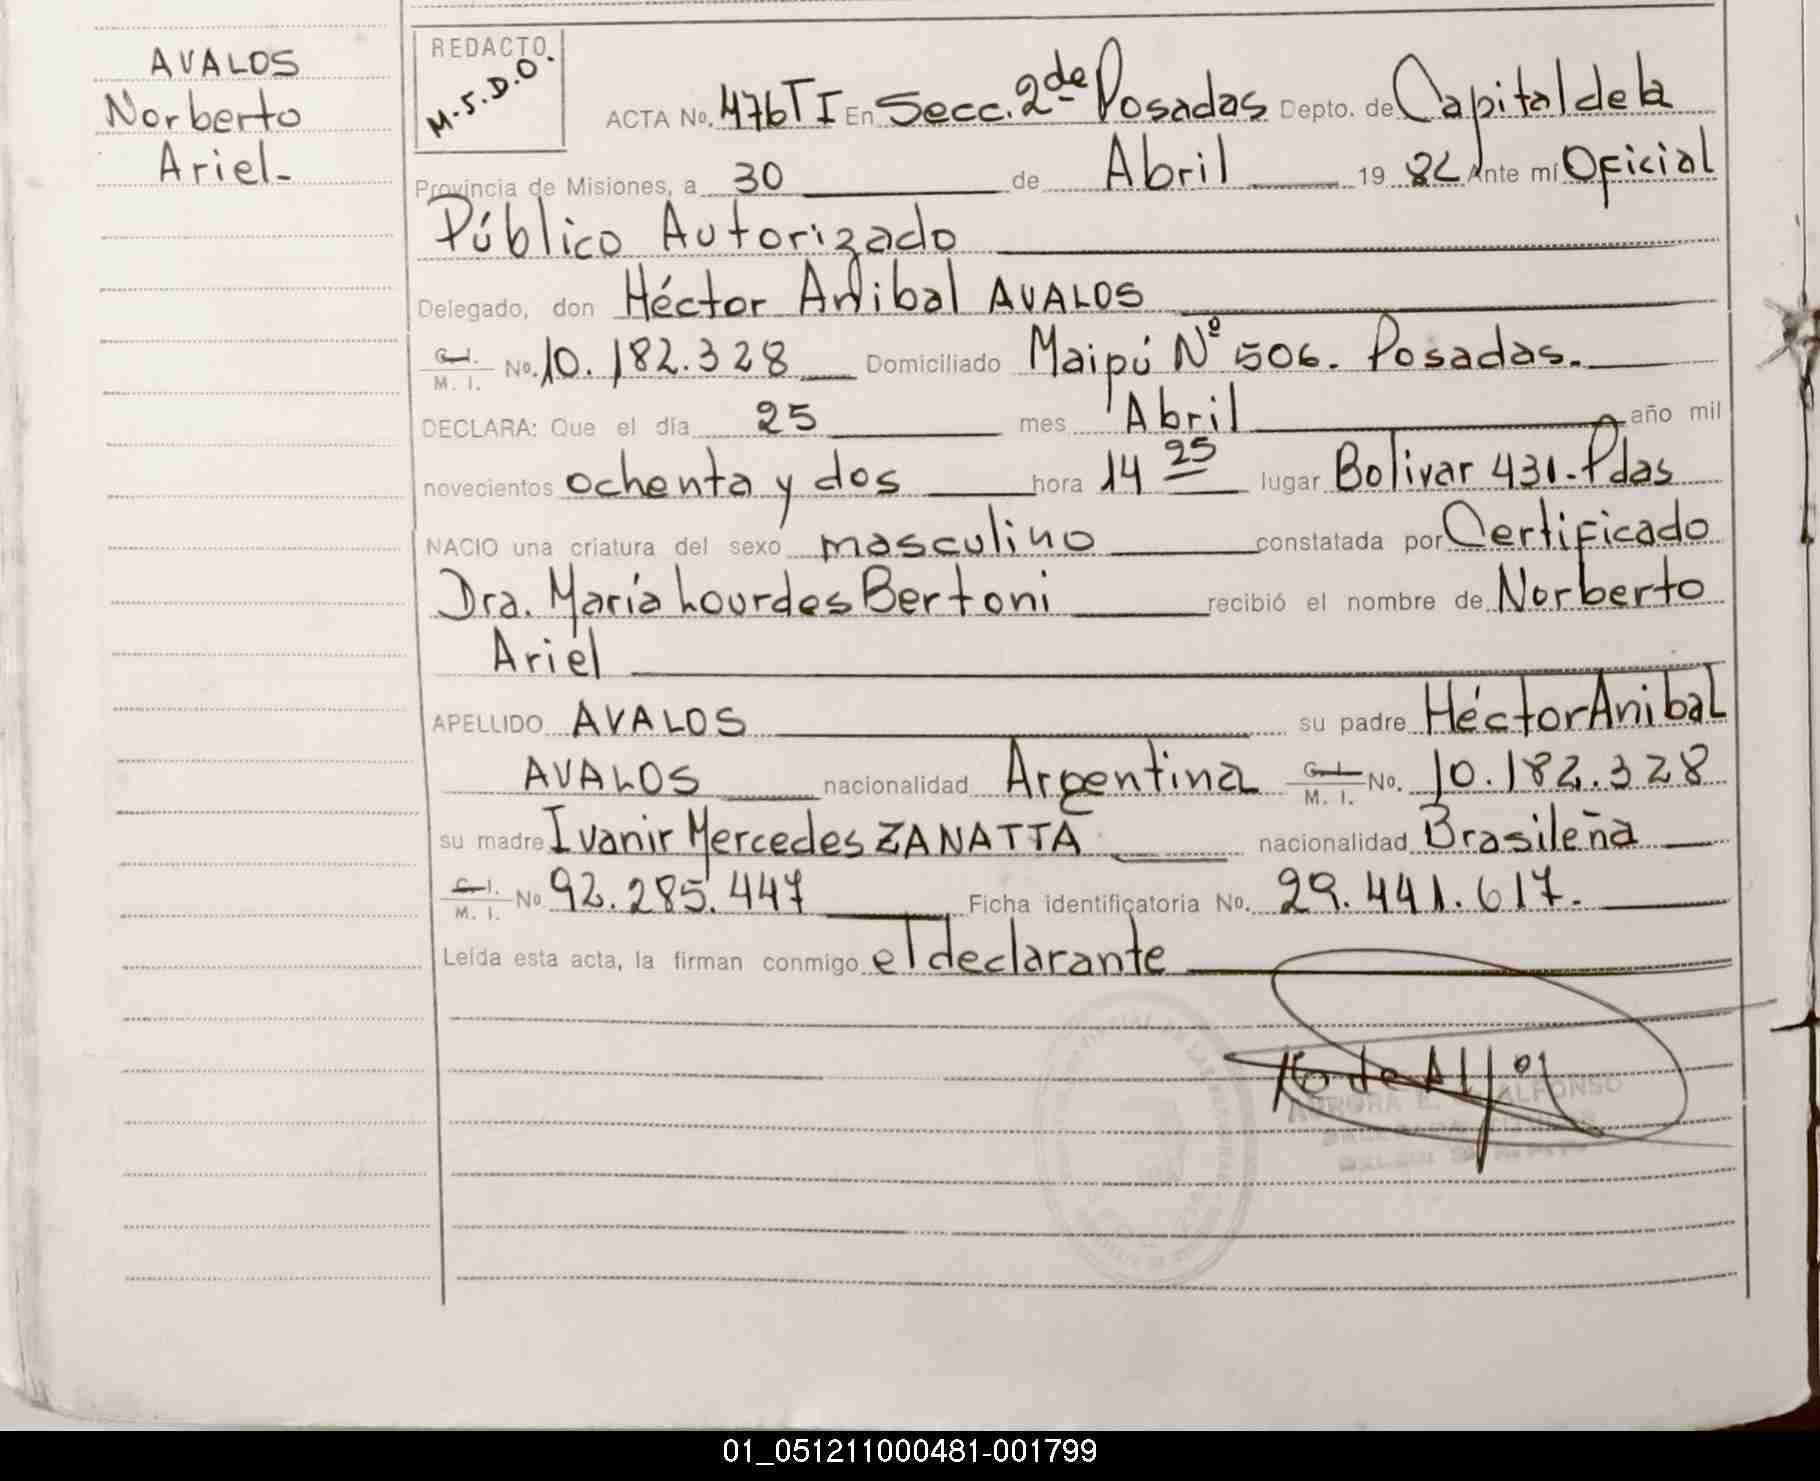 AVALOS
Norberto
Ariel-
REDACTO.
M.S.D.O.
ACTA No. 476 T I En Secc. 2da Posadas Depto. de Capital de la
Provincia de Misiones, a 30 de Abril 19 82 Ante mí Oficial
Público Autorizado
Delegado, don Héctor Anibal AVALOS
C. I. / M. I. No. 10.182.328 Domiciliado Maipú Nº 506. Posadas.
DECLARA: Que el día 25 mes Abril año mil
novecientos ochenta y dos hora 14 25 lugar Bolivar 431.-Pdas
NACIO una criatura del sexo masculino constatada por Certificado
Dra. María Lourdes Bertoni recibió el nombre de Norberto
Ariel
APELLIDO AVALOS su padre Héctor Anibal
AVALOS nacionalidad Argentina C. I. / M. I. No. 10.182.328
su madre Ivanir Mercedes ZANATTA nacionalidad Brasileña
C. I. / M. I. No 92.285.447 Ficha identificatoria No. 29.441.617.
Leída esta acta, la firman conmigo el declarante
AURORA E. ALFONSO
01_051211000481-001799